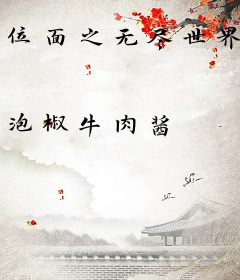 位面之无尽世界
泡椒牛肉酱